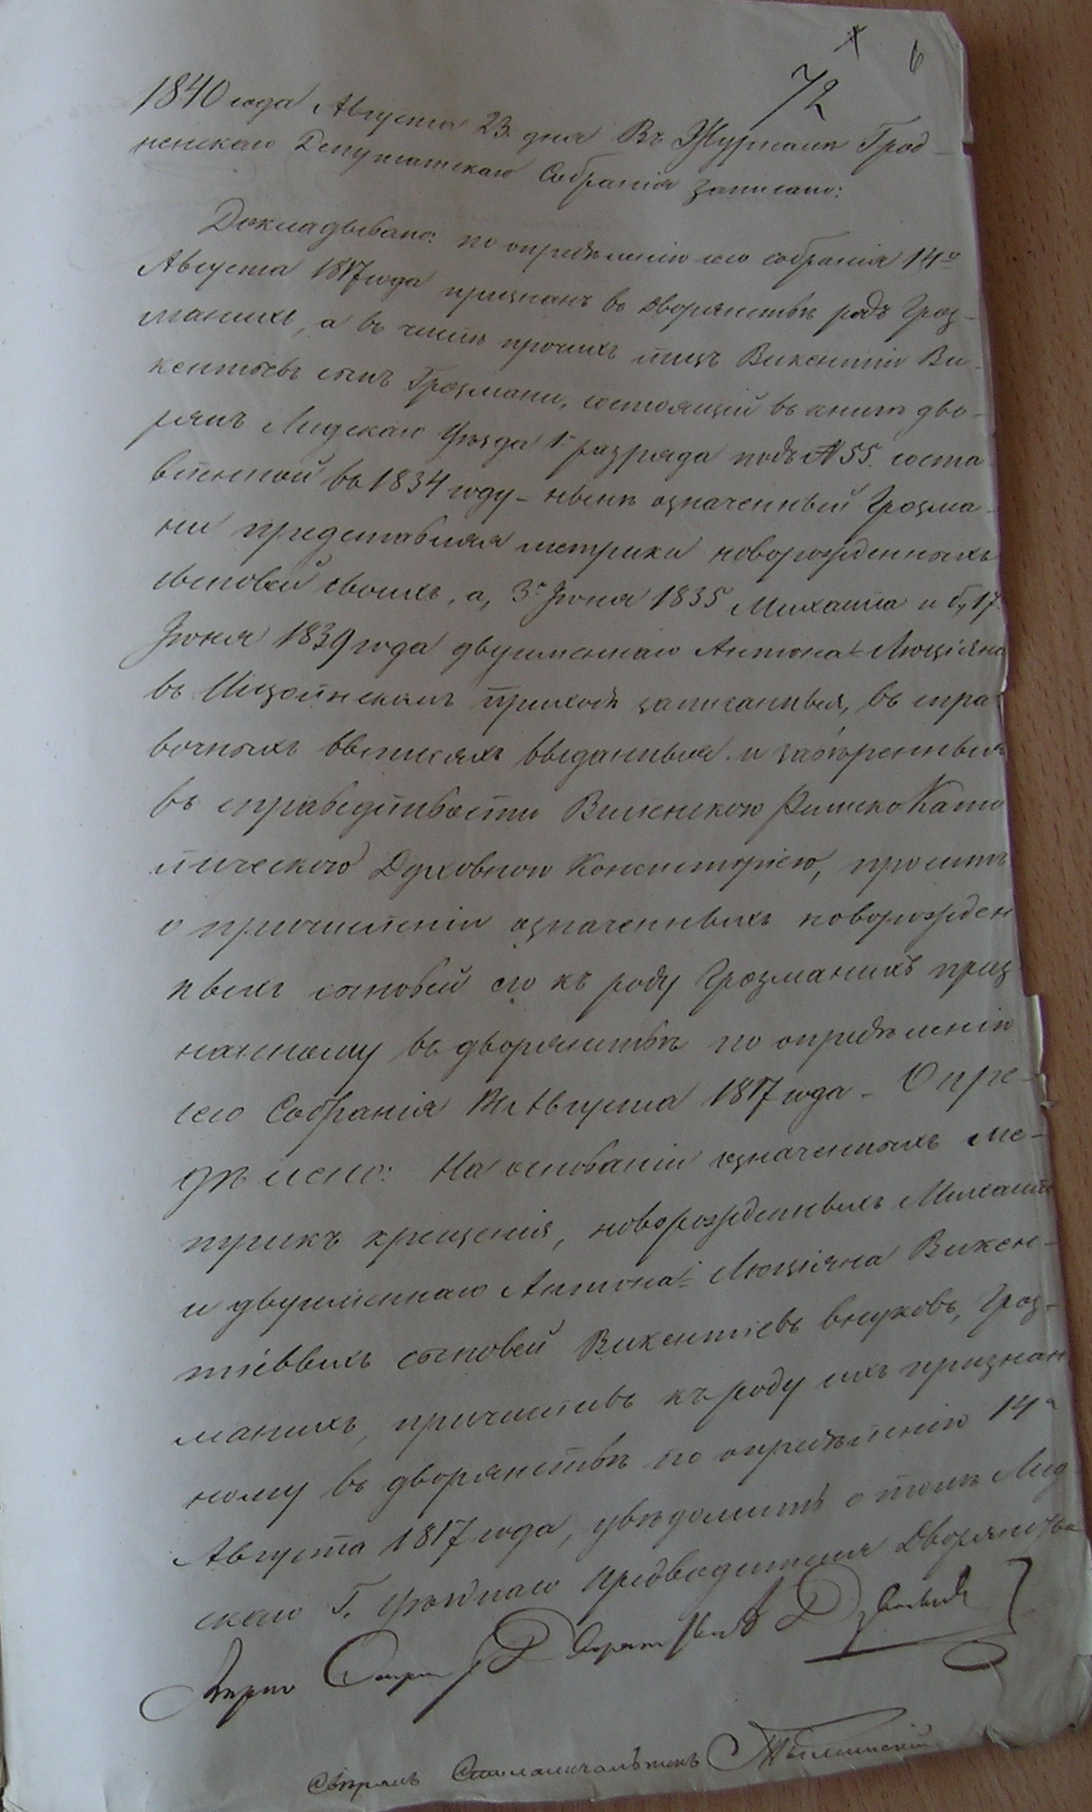 6
72
1840 года Августа 23 дня Въ Журналѣ Грод-
ненскаго Депутатскаго Собранія записано:
Докладывано: по опредѣленію сего собранія 14го
Августа 1817 года признанъ въ дворянствѣ родъ Гроз-
маниxъ, а въ числѣ прочихъ лицъ Викентій Ви-
кентьевъ сынъ Грозмани, состоящій въ книгѣ дво-
рянъ Лидскаго Уѣзда 1 разряда подъ № 55. соста
вленной въ 1834 году - нынѣ означенный Грозма-
ни представляя метрики новорожденныхъ
сыновей своихъ, а, 3го Іюня 1835 Михаила и б, 17
Іюня 1839 года двуименнаго Антона-Люціяна
въ приходѣ записанныя, въ спра
вочныхъ выписяхъ выданныя и завѣренныя
въ справедливости Виленскою РимскоКато
лическою Духовною Консисторіею, проситъ
о причисленіи означенныхъ новорожден
ныхъ сыновей его къ роду Грозманихъ приз
нанному въ дворянствѣ по опредѣленію
сего Собранія 14 Августа 1817 года - Опре-
дѣлено: На основаніи означенныхъ ме-
трикъ крещенія, новорожденныхъ Михаила
и двуименнаго Антона-Люціяна Викен-
тіевыхъ сыновей Викентіевъ внуковъ, Гроз-
манихъ, причисливъ къ роду ихъ признан
ному въ дворянствѣ по опредѣленію 14го
Августа 1817 года, увѣдомить о томъ Лид
скаго Г. Уѣзднаго Предводителя Дворянства
Вѣрно Секретарь Дворянства
Свѣрялъ Столоначальникъ